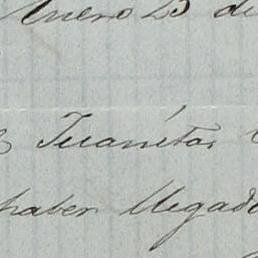 Enero 23 de
Juanita,
haber llegado